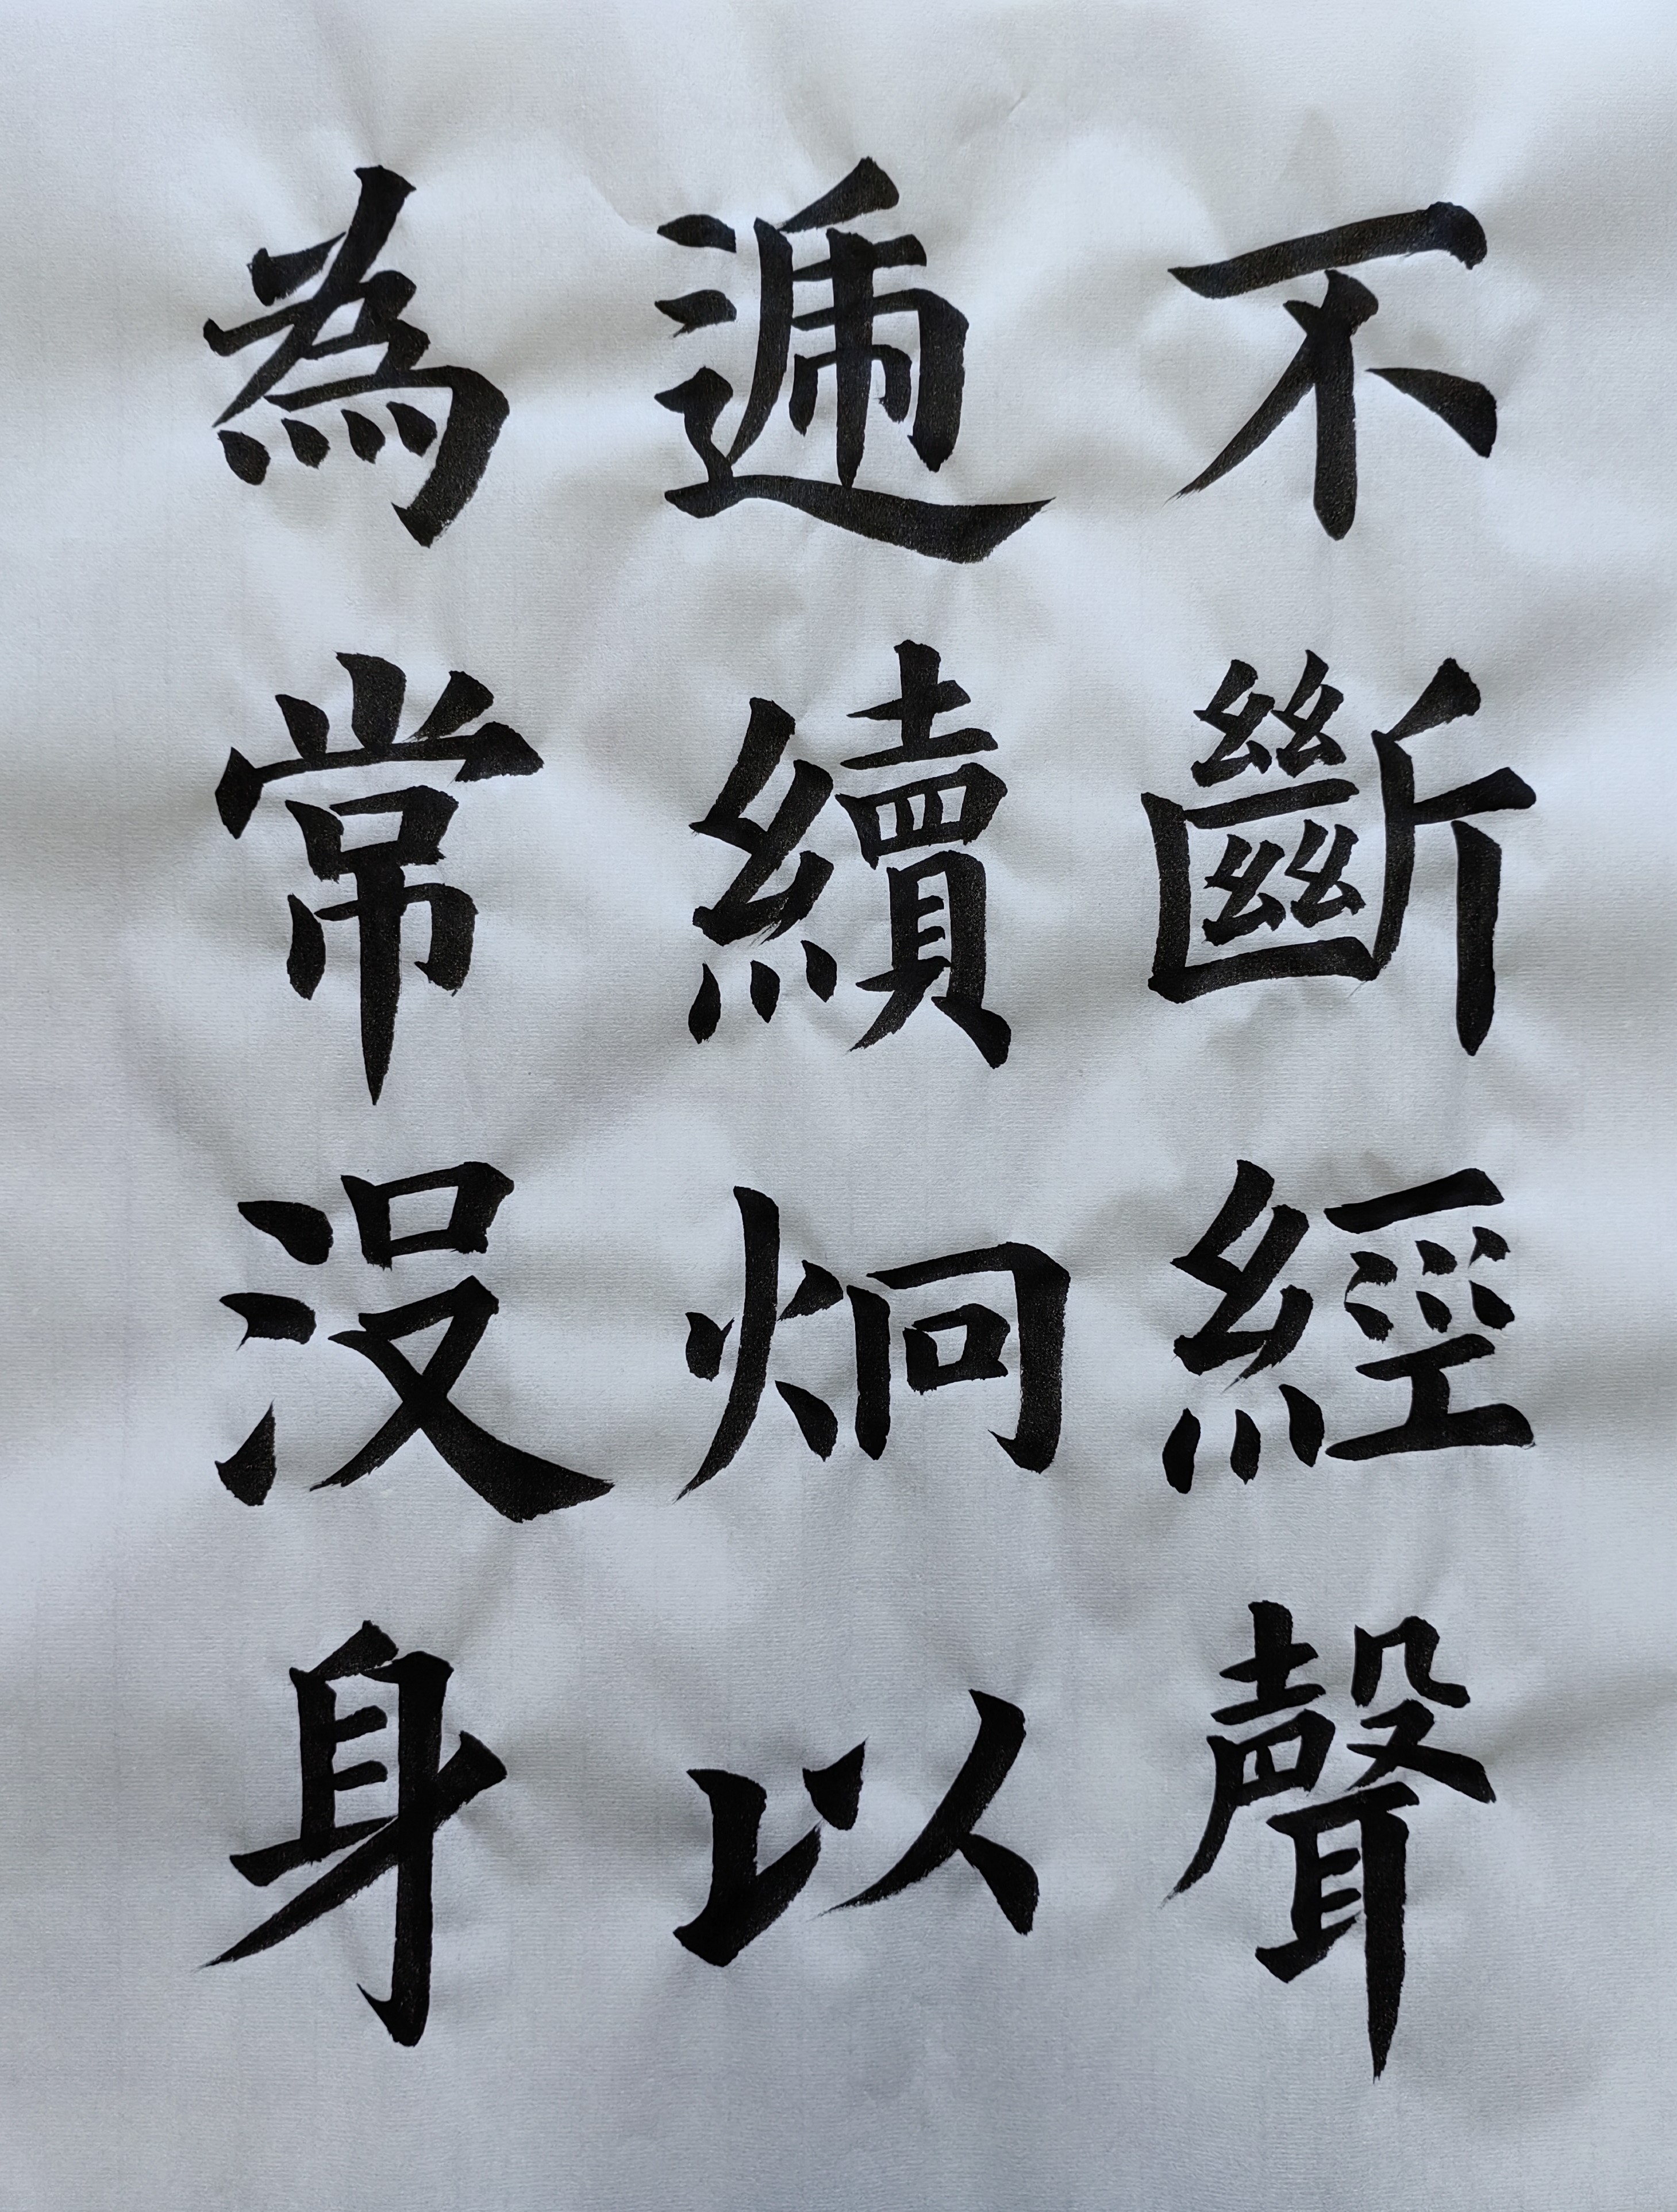 不斷經聲
遞續炯以
為常沒身